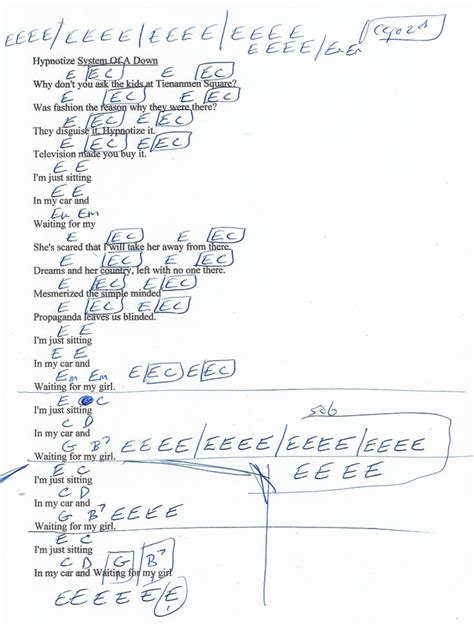 EEEE/EEEE/EEEE/EEEE
EEEE/Em Em
Hypnotize System Of A Down
E EC E EC
Why don't you ask the kids at Tienanmen Square?
E EC E EC
Was fashion the reason why they were there?
E EC E EC
They disguise it, Hypnotize it.
E EC E EC
Television made you buy it.
E E
I'm just sitting
E E
In my car and
Em Em
Waiting for my
E EC E EC
She's scared that I will take her away from there.
E EC E EC
Dreams and her country, left with no one there.
E EC E EC
Mesmerized the simple minded
E EC E EC
Propaganda leaves us blinded.
E E
I'm just sitting
E E
In my car and
Em Em E EC E EC
Waiting for my girl.
E C
I'm just sitting
C D
In my car and
G B7 EEEE/EEEE/EEEE/EEEE
Waiting for my girl.
EEEE
E C
I'm just sitting
C D
In my car and
G B7 EEEE
Waiting for my girl.
E C
I'm just sitting
C D G B7
In my car and Waiting for my girl
EEEEE/E